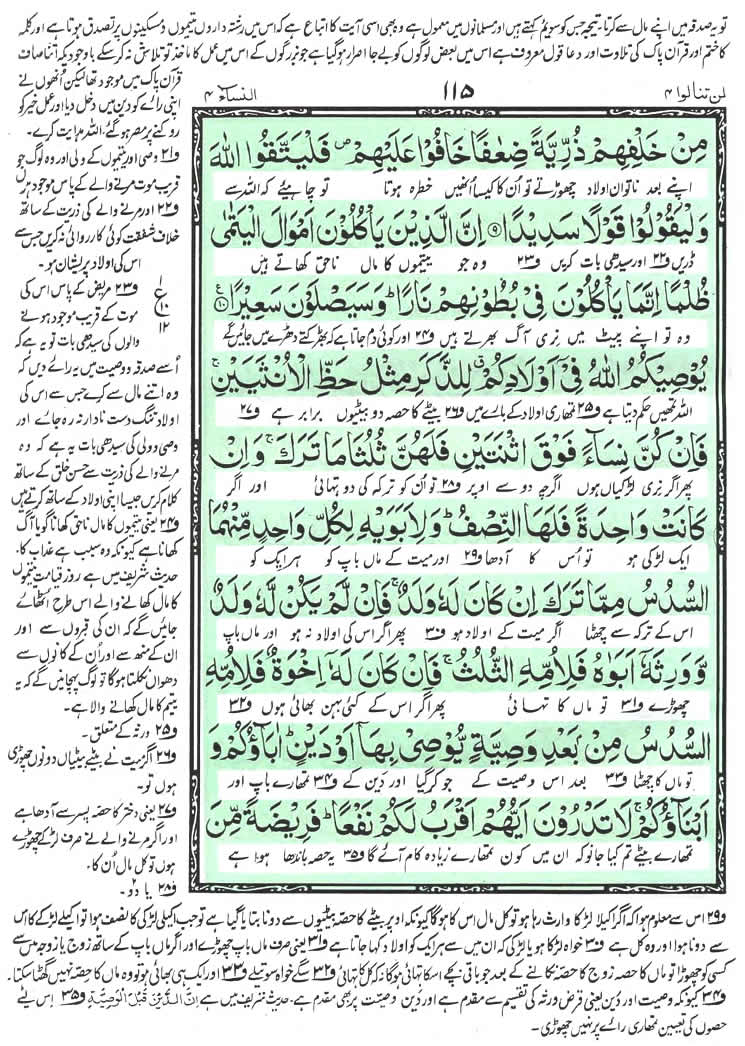 تو یہ صدقہ میں اپنے مال سے کرتا، تیجہ جس کو سوئم کہتے ہیں اور مسلمانوں میں معمول ہے وہ بھی اسی آیت کا اتباع ہے کہ اس میں رشتہ داروں یتیموں و مسکینوں پر تصدق ہوتا ہے اور کلمہ
کا ختم اور قرآن پاک کی تلاوت اور دعا قول معروف ہے اس میں بعض لوگوں کو بے جا اصرار ہوگیا ہے جو بزرگوں کے اس عمل کا ماخذ تو تلاش نہ کرسکے باوجودیکہ اتنا صاف
لن تنالوا ۴
۱۱۵
النساء ۴
مِنْ خَلْفِهِمْ ذُرِّيَّةً ضِعٰفًا خَافُوْا عَلَيْهِمْ ۪ فَلْيَتَّقُوا اللّٰهَ
اپنے بعد ناتواں اولاد چھوڑتے تو اُن کا کیسا اُنھیں خطرہ ہوتا تو چاہیئے کہ اللہ سے
وَلْيَقُوْلُوْا قَوْلًا سَدِيْدًا ۹ اِنَّ الَّذِيْنَ يَاْكُلُوْنَ اَمْوَالَ الْيَتٰمٰى
ڈریں ف۲۲ اور سیدھی بات کریں ف۲۳ وہ جو یتیموں کا مال ناحق کھاتے ہیں
ظُلْمًا اِنَّمَا يَاْكُلُوْنَ فِيْ بُطُوْنِهِمْ نَارًا ؕ وَسَيَصْلَوْنَ سَعِيْرًا ۱۰
وہ تو اپنے پیٹ میں نری آگ بھرتے ہیں ف۲۴ اور کوئی دم جاتا ہے کہ بھڑکتے دھڑے میں جائیں گے
يُوْصِيْكُمُ اللّٰهُ فِيْٓ اَوْلَادِكُمْ ۗ لِلذَّكَرِ مِثْلُ حَظِّ الْاُنْثَيَيْنِ ۚ
اللہ تمھیں حکم دیتا ہے ف۲۵ تمھاری اولاد کے بارے میں ف۲۶ بیٹے کا حصہ دو بیٹیوں برابر ہے ف۲۷
فَاِنْ كُنَّ نِسَآءً فَوْقَ اثْنَتَيْنِ فَلَهُنَّ ثُلُثَا مَا تَرَكَ ۚ وَاِنْ
پھر اگر نری لڑکیاں ہوں اگرچہ دو سے اوپر ف۲۸ تو اُن کو ترکہ کی دو تہائی اور اگر
كَانَتْ وَاحِدَةً فَلَهَا النِّصْفُ ؕ وَلِاَبَوَيْهِ لِكُلِّ وَاحِدٍ مِّنْهُمَا
ایک لڑکی ہو تو اُس کا آدھا ف۲۹ اور میت کے ماں باپ کو ہر ایک کو
السُّدُسُ مِمَّا تَرَكَ اِنْ كَانَ لَهٗ وَلَدٌ ۚ فَاِنْ لَّمْ يَكُنْ لَّهٗ وَلَدٌ
اس کے ترکہ سے چھٹا اگر میت کے اولاد ہو ف۳۰ پھر اگر اس کی اولاد نہ ہو اور ماں باپ
وَّوَرِثَهٗٓ اَبَوٰهُ فَلِاُمِّهِ الثُّلُثُ ۚ فَاِنْ كَانَ لَهٗٓ اِخْوَةٌ فَلِاُمِّهِ
چھوڑے ف۳۱ تو ماں کا تہائی پھر اگر اس کے کئی بہن بھائی ہوں ف۳۲
السُّدُسُ مِنْۢ بَعْدِ وَصِيَّةٍ يُّوْصِيْ بِهَآ اَوْ دَيْنٍ ؕ اٰبَآؤُكُمْ وَ
تو ماں کا چھٹا ف۳۳ بعد اس وصیت کے جو کر گیا اور دَین کے ف۳۴ تمھارے باپ اور
اَبْنَآؤُكُمْ ۚ لَا تَدْرُوْنَ اَيُّهُمْ اَقْرَبُ لَكُمْ نَفْعًا ؕ فَرِيْضَةً مِّنَ
تمھارے بیٹے تم کیا جانو کہ ان میں کون تمھارے زیادہ کام آئے گا ف۳۵ یہ حصہ باندھا ہوا ہے
قرآن پاک میں موجود تھا لیکن اُنھوں نے
اپنی رائے کو دین میں دخل دیا اور عمل خیر کو
روکنے پر مصر ہوگئے، اللہ ہدایت کرے۔
ف۲۱ وصی اور یتیموں کے ولی اور وہ لوگ جو
قریب موت مرنے والے کے پاس موجود ہوں
ف۲۲ اور مرنے والے کی ذریت کے ساتھ
خلاف شفقت کوئی کارروائی نہ کریں جس سے
اس کی اولاد پریشان ہو۔
ع
۱۰
۱۲
ف۲۳ مریض کے پاس اس کی
موت کے قریب موجود ہونے
والوں کی سیدھی بات تو یہ ہے کہ
اُسے صدقہ و وصیت میں یہ رائے دیں کہ
وہ اتنے مال سے کرے جس سے اس کی
اولاد تنگ دست نادار نہ رہ جائے اور
وصی و ولی کی سیدھی بات یہ ہے کہ وہ
مرنے والے کی ذریت سے حسن خلق کے ساتھ
کلام کریں جیسا اپنی اولاد کے ساتھ کرتے ہیں
ف۲۴ یعنی یتیموں کا مال ناحق کھانا گویا آگ
کھانا ہے کیونکہ وہ سبب ہے عذاب کا۔
حدیث شریف میں ہے روز قیامت یتیموں
کا مال کھانے والے اس طرح اُٹھائے
جائیں گے کہ ان کی قبروں سے اور
ان کے منھ سے اور اُن کے کانوں سے
دھواں نکلتا ہوگا تو لوگ پہچانیں گے کہ یہ
یتیم کا مال کھانے والا ہے۔
ف۲۵ ورثہ کے متعلق۔
ف۲۶ اگر میت نے بیٹے بیٹیاں دونوں چھوڑی
ہوں تو۔
ف۲۷ یعنی دختر کا حصہ پسر سے آدھا ہے
اور اگر مرنے والے نے صرف لڑکے چھوڑے
ہوں تو کل مال اُن کا۔
ف۲۸ یا دو۔
ف۲۹ اس سے معلوم ہوا کہ اگر اکیلا لڑکا وارث رہا ہو تو کل مال اس کا ہوگا کیونکہ اوپر بیٹے کا حصہ بیٹیوں سے دونا بتایا گیا ہے تو جب اکیلی لڑکی کا نصف ہوا تو اکیلے لڑکے کا اُس
سے دونا ہوا اور وہ کل ہے ف۳۰ خواہ لڑکا ہو یا لڑکی کہ ان میں سے ہر ایک کو اولاد کہا جاتا ہے ف۳۱ یعنی صرف ماں باپ چھوڑے اور اگر ماں باپ کے ساتھ زوج یا زوجہ میں سے
کسی کو چھوڑا تو ماں کا حصہ زوج کا حصہ نکالنے کے بعد جو باقی بچے اس کا تہائی ہوگا نہ کہ کل کا تہائی ف۳۲ سگے خواہ سوتیلے ف۳۳ اور ایک ہی بھائی ہو تو وہ ماں کا حصہ نہیں گھٹا سکتا۔
ف۳۴ کیونکہ وصیت اور دین یعنی قرض ورثہ کی تقسیم سے مقدم ہے اور دین وصیت پر بھی مقدم ہے۔ حدیث شریف میں ہے اِنَّ الدَّيْنَ قَبْلَ الْوَصِيَّةِ ف۳۵ اس لیے
حصوں کی تعیین تمھاری رائے پر نہیں چھوڑی۔